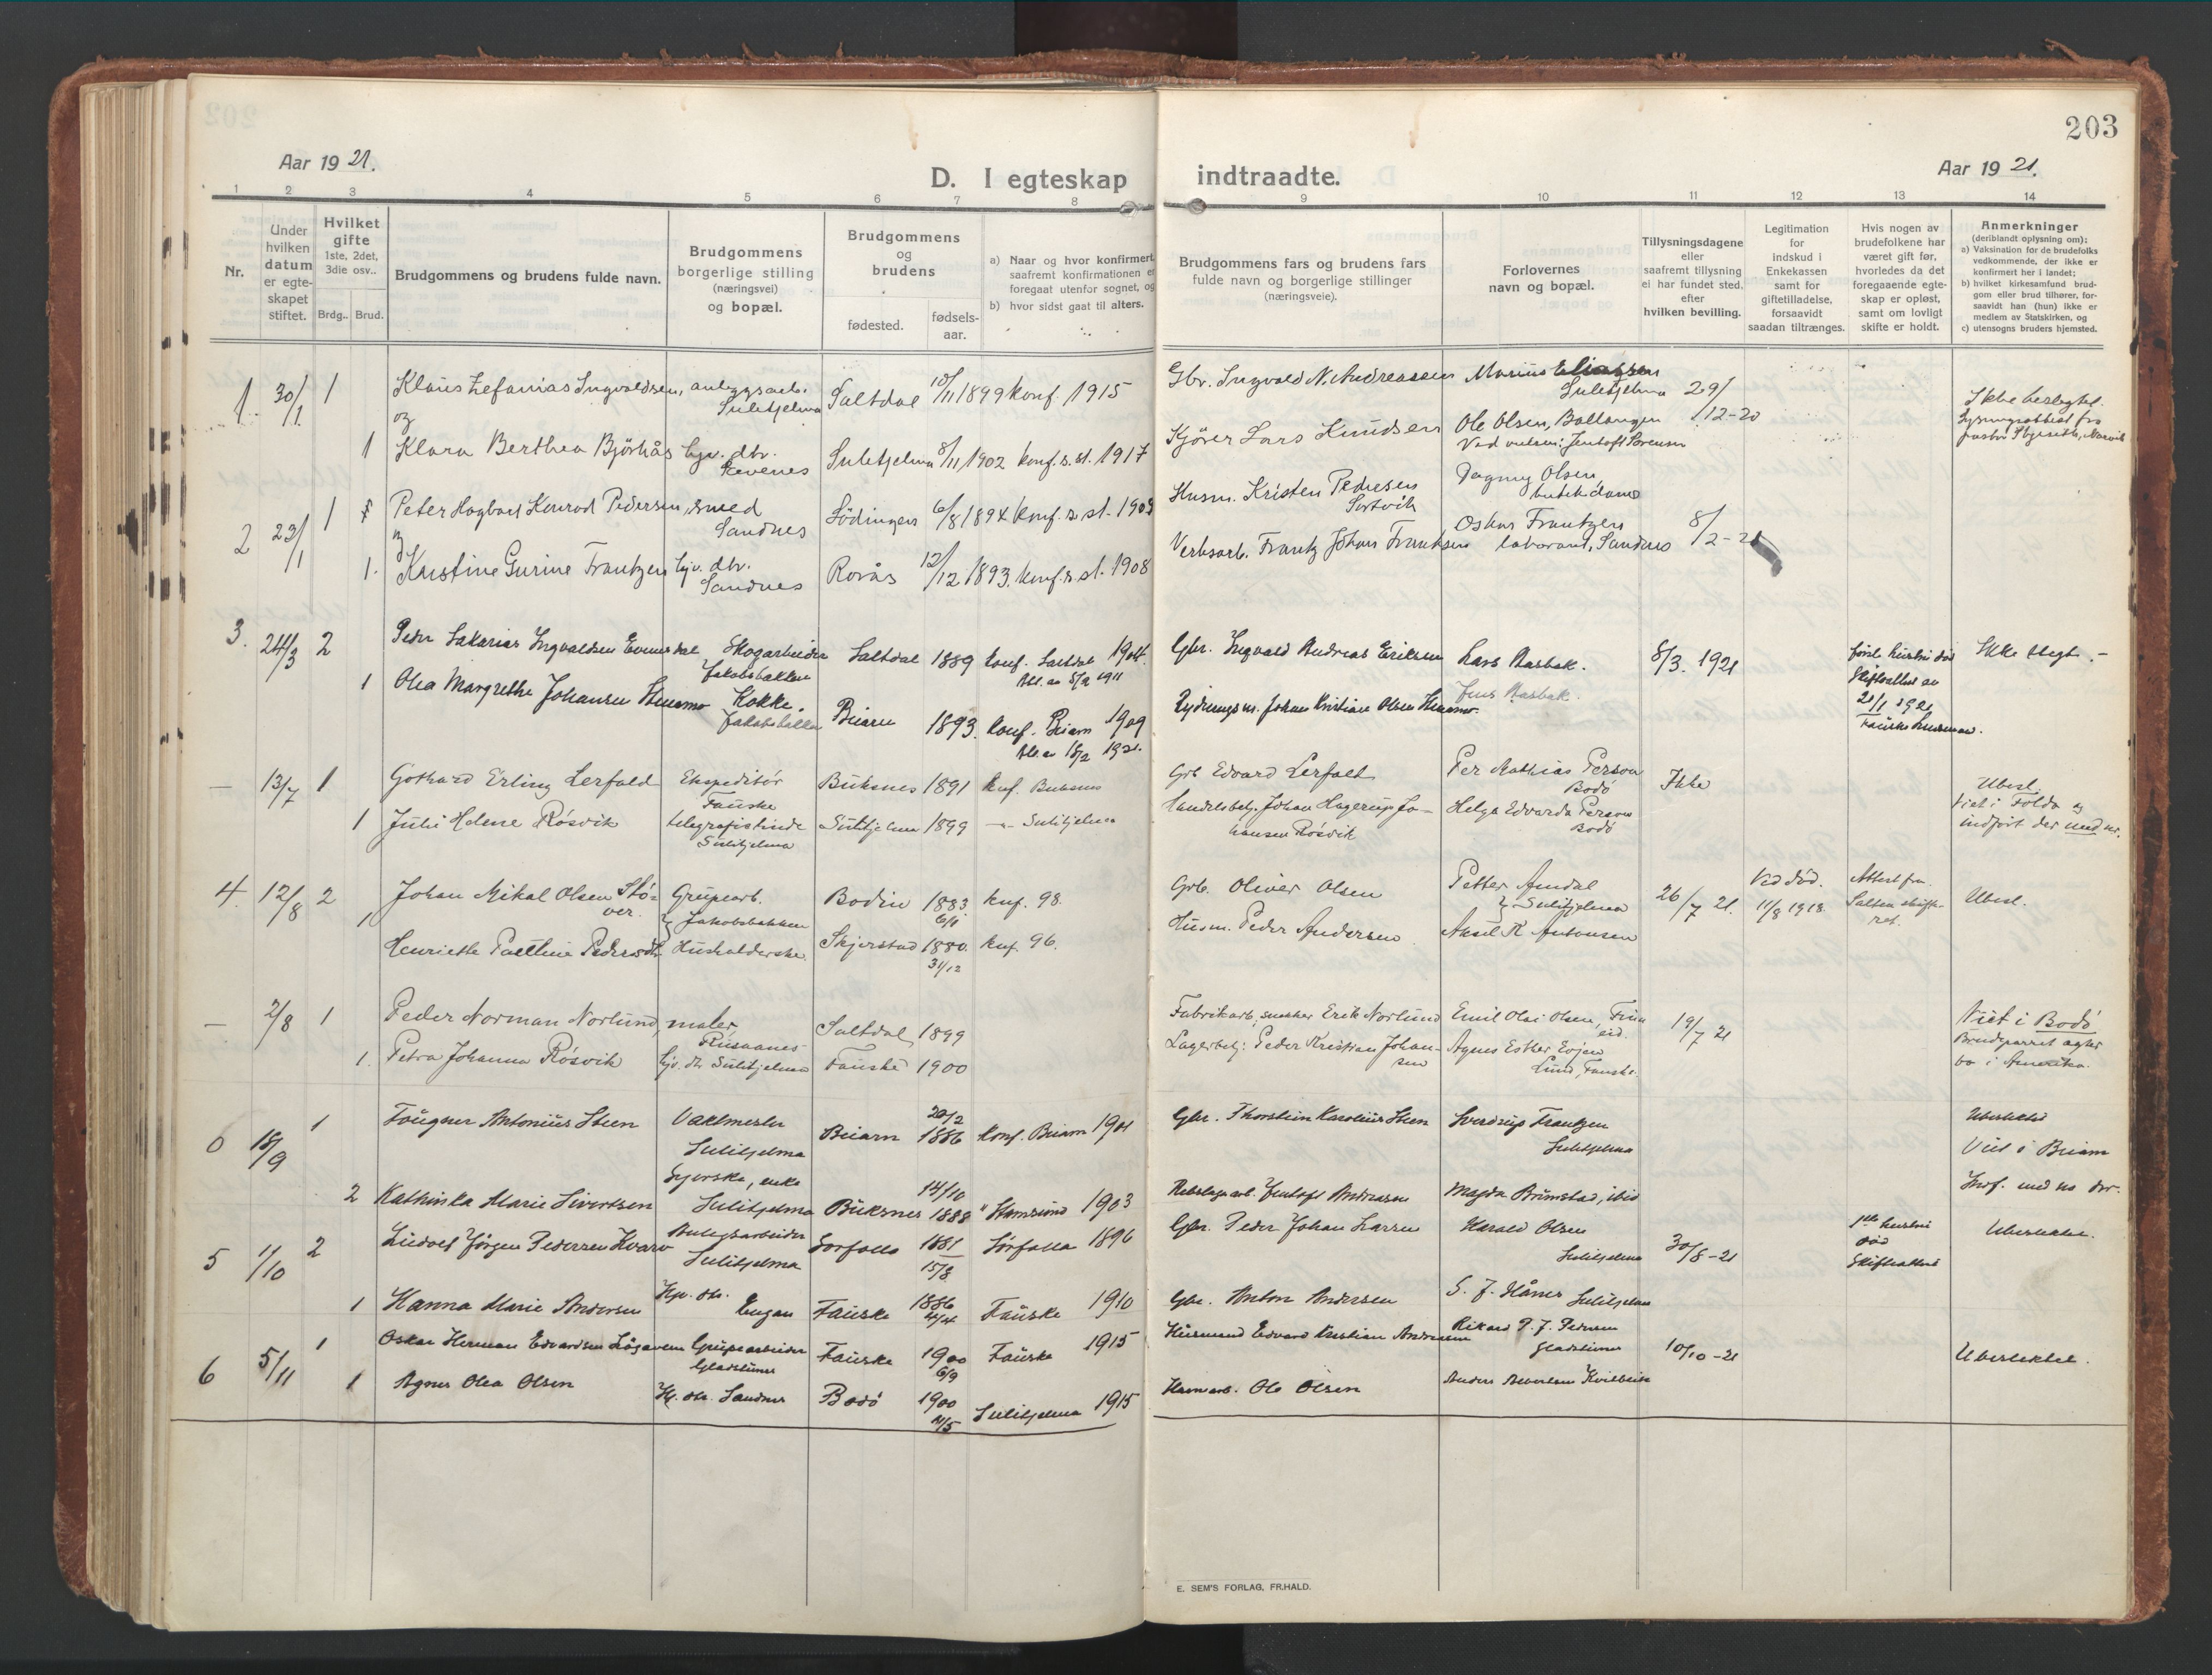 203
Aar 1921.
D. I egteskap indtraadte.
Aar 1921.
1 2 3 4 5 6 7 8 9 10 11 12 13 14
Nr.
Under hvilken datum er egteskapet stiftet.
Hvilket gifte 1ste, 2det, 3die osv..
Brdg.. Brud.
Brudgommens og brudens fulde navn.
Brudgommens borgerlige stilling (næringsvei) og bopæl.
Brudgommens og brudens
fødested.
fødselsaar.
a) Naar og hvor konfirmert, saafremt konfirmationen er foregaat utenfor sognet, og
b) hvor sidst gaat til alters.
Brudgommens fars og brudens fars fulde navn og borgerlige stillinger (næringsveie).
Forlovernes navn og bopæl.
Tillysningsdagene eller saafremt tillysning ei har fundet sted, efter hvilken bevilling.
Legitimation for indskud i Enkekassen samt for giftetilladelse, forsaavidt saadan tiltrænges.
Hvis nogen av brudefolkene har været gift før, hvorledes da det foregaaende egteskap er opløst, samt om lovligt skifte er holdt.
Anmerkninger (deriblandt oplysning om):
a) Vaksination for de brudefolks vedkommende, der ikke er konfirmert her i landet;
b) hvilket kirkesamfund brudgom eller brud tilhører, forsaavidt han (hun) ikke er medlem av Statskirken, og
c) utensogns bruders hjemsted.
1. 30/1 1 Klaus Zefanias Ingvaldsen, anlegsarb. Sulitjelma Saltdal 10/11 1899 konf. 1915 Gbr. Ingvald N. Andreassen Marius Eliassen Sulitjelma 29/12-20 Ikke beslegtet.
og
1 Klara Berthea Bjørhås hjv. dtr. Sulitjelma 8/11 1902 konf. s. st. 1917 Kjører Lars Knudsen Ole Olsen, Ballangen
2 23/1 1 Peter Hagbart Konrad Pedersen, smed Sandnes Lødingen 6/8 1894 konf. s. st. 1909 Husm. Kristen Pedersen Dagny Olsen butikdame
og
1. Kristine Gurine Frantzen hjv. dtr. Sandnes 12/12 1893. konf. s. st. 1908 Verksarb. Frantz Johan Frantzen Oskar Frantzen laborant, Sandnes 8/2-21
3. 24/3 2 Peder Sakarias Ingvaldsen Evensdal Skogarbeider Jakobsbakken Saltdal 1889 konf. Saltdal 1904. Gbr. Ingvald Andreas Eriksen Lars Aasbak. 8/3. 1921 Ikke slegt.
1 Olea Margrethe Johansen Kokke. Jakobsbakken Beiarn 1893. konf. Beiarn 1909 Rydningsm. Johan Kristian Olsen Jens Aasbak. 21/1 1921
– 13/7 1 Gothard Erling Lerfald Ekspeditør Fauske Buksnes 1891 Knf. Buksnes Grb Edvard Lerfalt Per Mathias Person Bodø Ikke Ubesl.
1 Juli Helene Røsvik telegrafistinde Sulitjelma Sulitjelma 1899 –"– Sulitjelma Handelsbetj. Johan Hagerup Johansen Røsvik Helga Edvarda Person Bodø Viet i Folda og indført der med nr.
4. 12/8 2 Johan Mikal Olsen Støver Grubearb. Jakobsbakken Bodin 1883 6/1 knf. 98. Grb. Oliver Olsen Petter Amdal Sulitjelma 26/7 21. Ved død. 11/8 1918. Attest fra Salten skifteret. Ubesl.
1 Henriette Pauline Pedersdtr. Husholderske. Skjerstad 1880. 31/12 knf. 96. Husm. Peder Andersen Aksel R Antonsen
– 2/8 1 Peder Norman Norlund, maler, Saltdal, 1899 Fabrikarb., snekker Erik Norlund Emil Olai Olsen, 19/7 21 Viet i Bodø
1. Petra Johanna Røsvik hjv. dtr. Sulitjelma Fauske 1900 Lagerbetj: Peder Kristian Johansen Agnes Esther Evjen Lund, Fauske. Brudeparret agter bo i Amerika.
0 18/9 1 Fougner Antonius Steen Vaktmester Sulitjelma Beiarn 20/2 1886 konf. Beiarn 1901 Gbr. Thorstein Karolius Steen Sverdrup Frantzen Sulitjelma Ubeslektet Viet i Beiarn
2 Kathinka Marie Sivertsen enke Sulitjelma Buksnes 14/10 1888 " Stamsund 1903 Magda Brunstad, ibid Indf. med no der.
5 1/10 2 Ludolf Jørgen Pedersen Kvarv Anlegsarbeider Sulitjelma Sørfolla 1881 15/8 Sørfolla 1896 Gbr. Peder Johan Larsen Harald Olsen Sulitjelma 30/8-21 1ste hustru død Skifteattest Ubeslektet.
1 Hanna Marie Andersen Hjv. dtr. Engan Fauske 1886 Fauske 1910 Gbr. Anton Andersen Sulitjelma
6 5/11 1 Oskar Herman Edvardsen Grubearbeider Fauske 1900 6/9 Fauske 1915 Husmand Edvard Kristian Andreassen Rikard P. J. Pedersen 10/10-21 Ubeslektet.
1 Agnes Olea Olsen Hj. dtr. Sandnes Bodø 1900 Sulitjelma 1915 Ole Olsen
E. SEM'S FORLAG, FR.HALD.